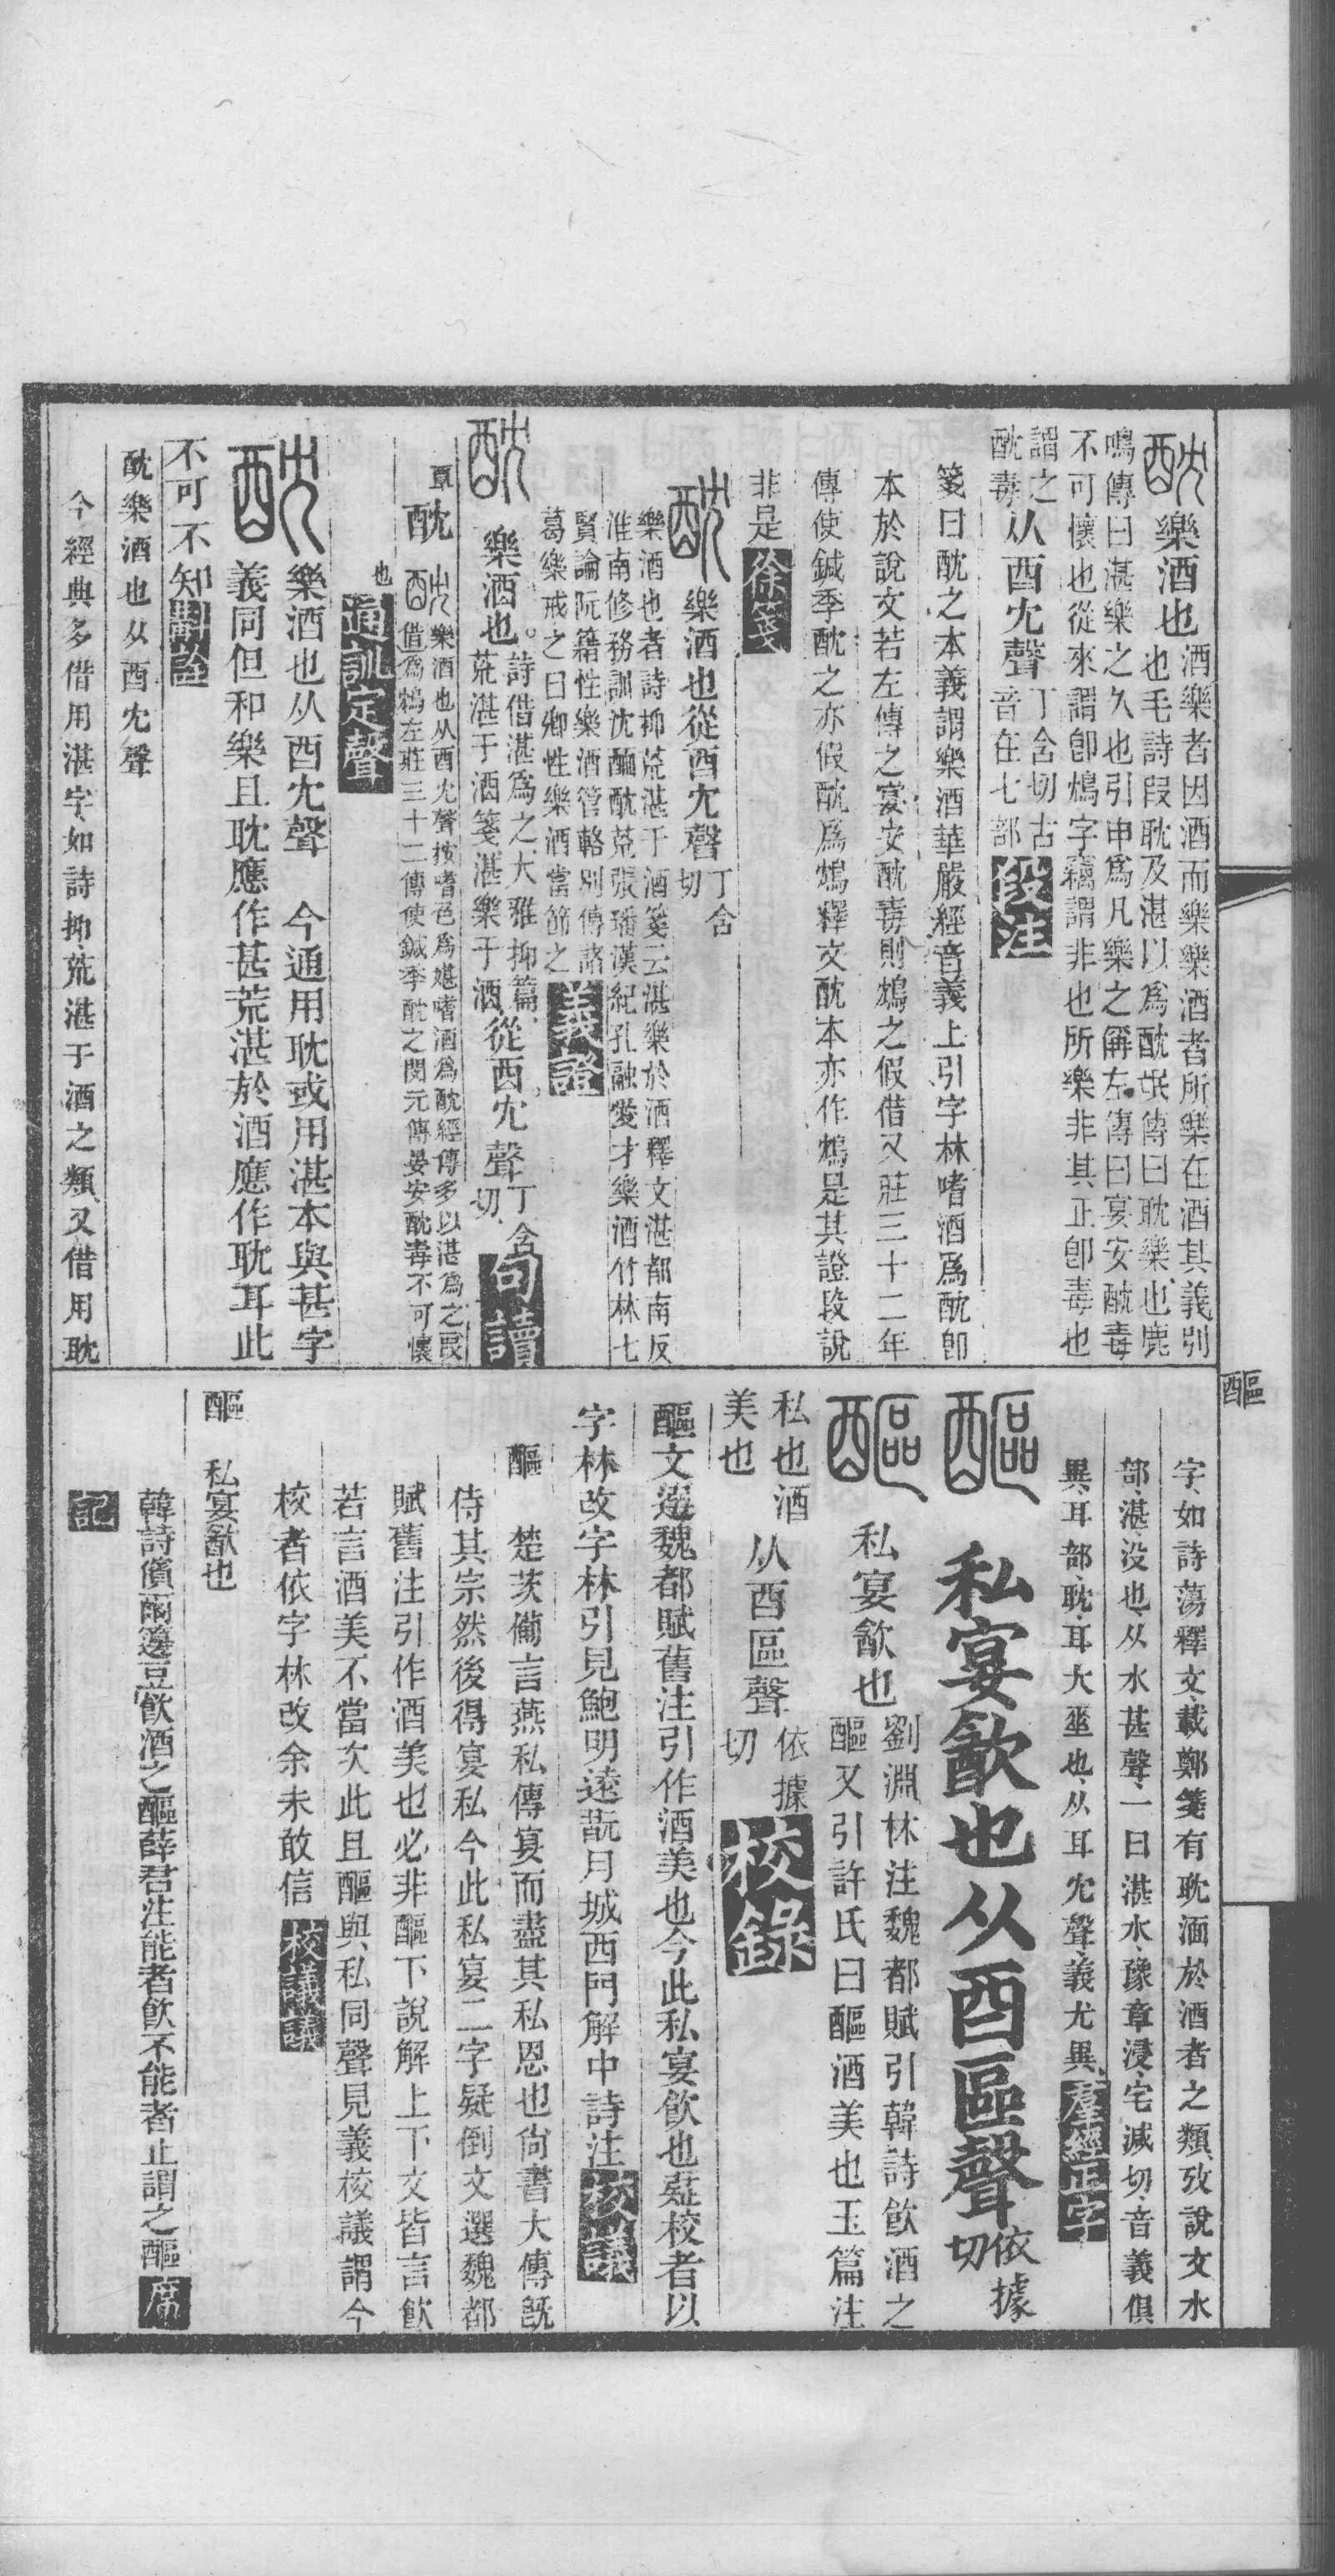 酖樂酒也酒樂者因酒而樂樂酒者所樂在酒其義別
也毛詩叚耽及湛以爲酖氓傳曰耽樂也鹿
鳴傳曰湛樂之久也引申爲凡樂之偁左傳曰宴安酖毒
不可懷也從來謂卽鴆字竊謂非也所樂非其正卽毒也
謂之
酖毒从酉冘聲丁含切古
音在七部段注
箋曰酖之本義謂樂酒華嚴經音義上引字林嗜酒爲酖卽
本於說文若左傳之宴安酖毒則鴆之假借又莊三十二年
傳使鍼季酖之亦假酖爲鴆釋文酖本亦作鴆是其證段說
非是徐箋
酖樂酒也從酉冘聲丁含
切
樂酒也者詩抑荒湛于酒箋云湛樂於酒釋文湛都南反
淮南修務訓沈酾酖荒張璠漢紀孔融愛才樂酒竹林七
賢論阮籍性樂酒管輅別傳諸
葛樂戒之曰卿性樂酒當節之義證
酖樂酒也。詩借湛爲之大雅抑篇
荒湛于酒箋湛樂于酒。從酉冘聲丁含
切句讀
覃酖酖樂酒也从酉冘聲按嗜色爲媅嗜酒爲酖經傳多以湛爲之叚
借爲鴆左莊三十二傳使鍼季酖之閔元傳晏安酖毒不可懷
也通訓定聲
酖樂酒也从酉冘聲 今通用耽或用湛本與甚字
義同但和樂且耽應作甚荒湛於酒應作耽耳此
不可不知斠詮
酖樂酒也从酉冘聲
今經典多借用湛字如詩抑荒湛于酒之類又借用耽
醧
字如詩蕩釋文載鄭箋有耽湎於酒者之類攷說文水
部湛没也从水甚聲一曰湛水豫章浸宅減切音義俱
異耳部耽耳大垂也从耳冘聲義尤異羣經正字
醧 私宴㱃也从酉區聲依據
切
醧 私宴㱃也劉淵林注魏都賦引韓詩飮酒之
醧又引許氏曰醧酒美也玉篇注
私也酒
美也从酉區聲依據
切校錄
醧文選魏都賦舊注引作酒美也今此私宴飮也疑校者以
字林改字林引見鮑明遠翫月城西門解中詩注校議
醧 楚茨備言燕私傳宴而盡其私恩也尙書大傳旣
侍其宗然後得宴私今此私宴二字疑倒文選魏都
賦舊注引作酒美也必非醧下說解上下文皆言飮
若言酒美不當次此且醧與私同聲見義校議謂今
校者依字林改余未敢信校議議
醧 私宴㱃也
韓詩儐爾籩豆飮酒之醧薛君注能者飮不能者止謂之醧席
記